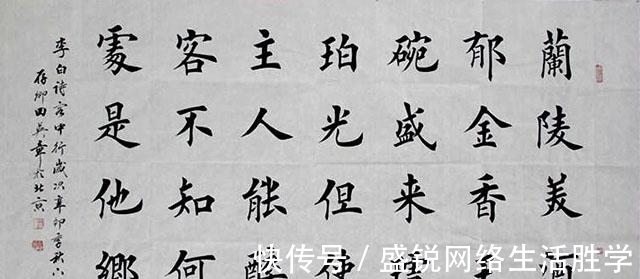 蘭陵美
郁金香
碗盛来
珀光但使
主人能醉
客不知何
處是他鄉
李白诗客中行歲次辛卯季秋六
存卿田英章於北京
快传号 / 盛锐网络生活胜学